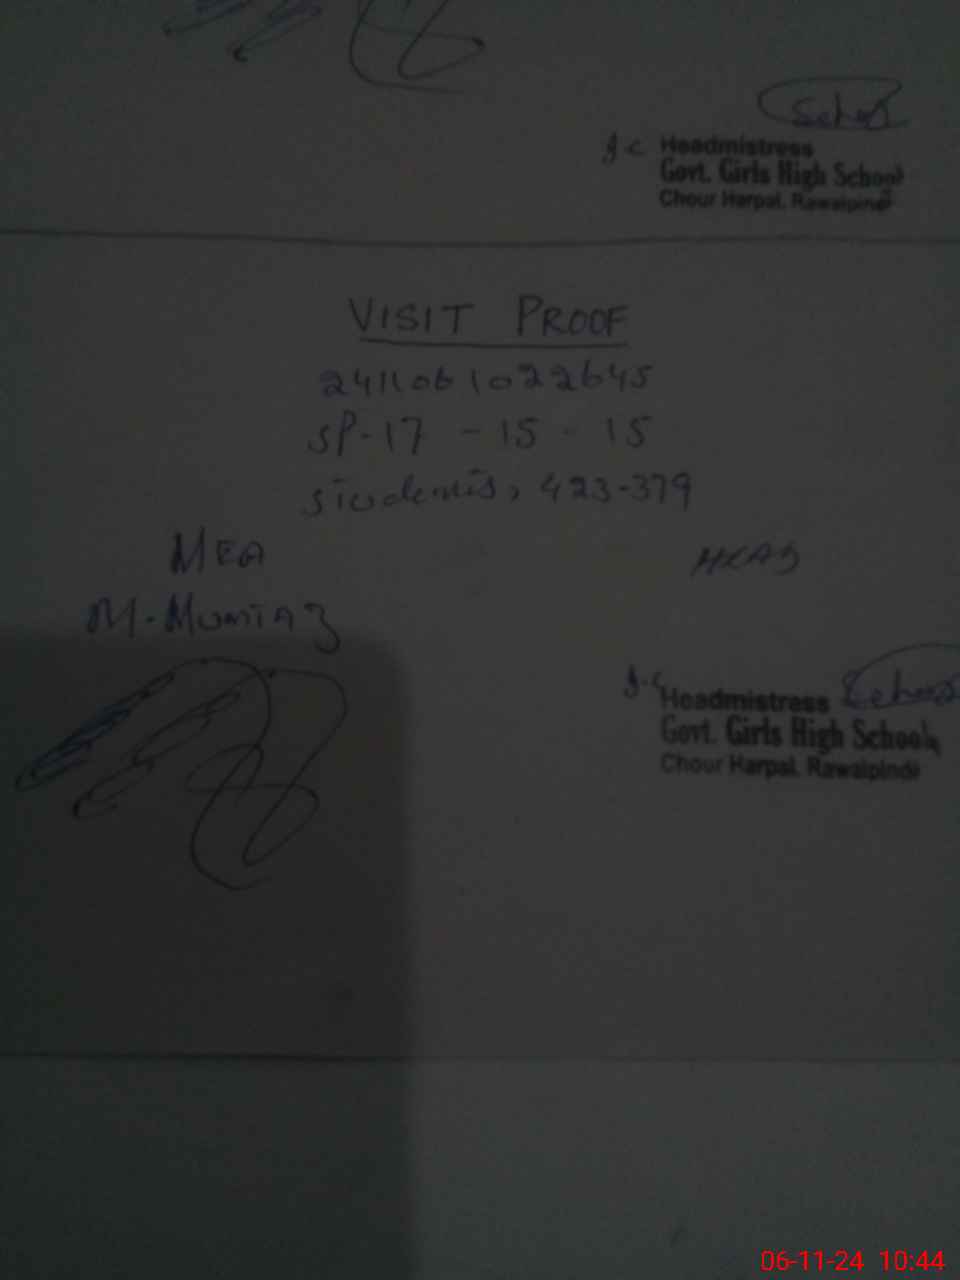 I-C Headmistress
Govt. Girls High School
Chour Harpal, Rawalpindi
VISIT PROOF
2411061022645
SP-17 - 15 - 15
students, 423-379
MEA
M. Mumtaz
I-C Headmistress
Govt. Girls High School
Chour Harpal, Rawalpindi
06-11-24 10:44